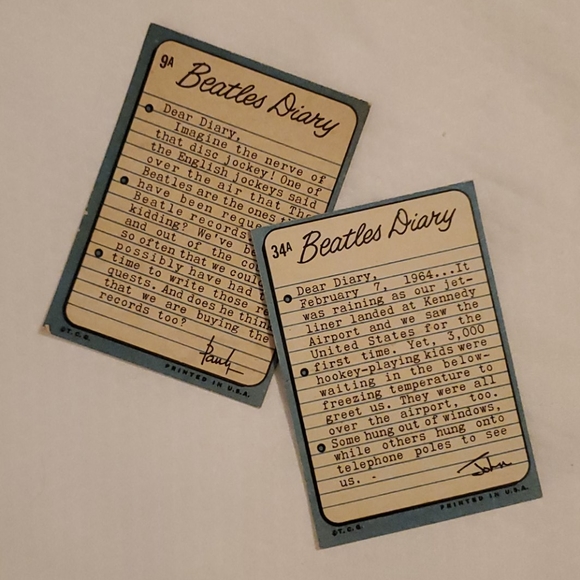 9A
Beatles Diary
Dear Diary,
Imagine the nerve of
that disc jockey! One of
the English jockeys said
over the air that The
Beatles are the ones
have been
Beatle records
kidding? We've
and out of the
so often that we could
possibly have had
time to write those
quests. And does he think
that we are buying the
records too?
Paul
©T.C.G.
PRINTED IN U.S.A.
34A
Beatles Diary
Dear Diary,
February 7, 1964...It
was raining as our jet-
liner landed at Kennedy
Airport and we saw the
United States for the
first time. Yet, 3,000
hookey-playing kids were
waiting in the below-
freezing temperature to
greet us. They were all
over the airport, too.
Some hung out of windows,
while others hung onto
telephone poles to see
us. -
John
©T.C.G.
PRINTED IN U.S.A.